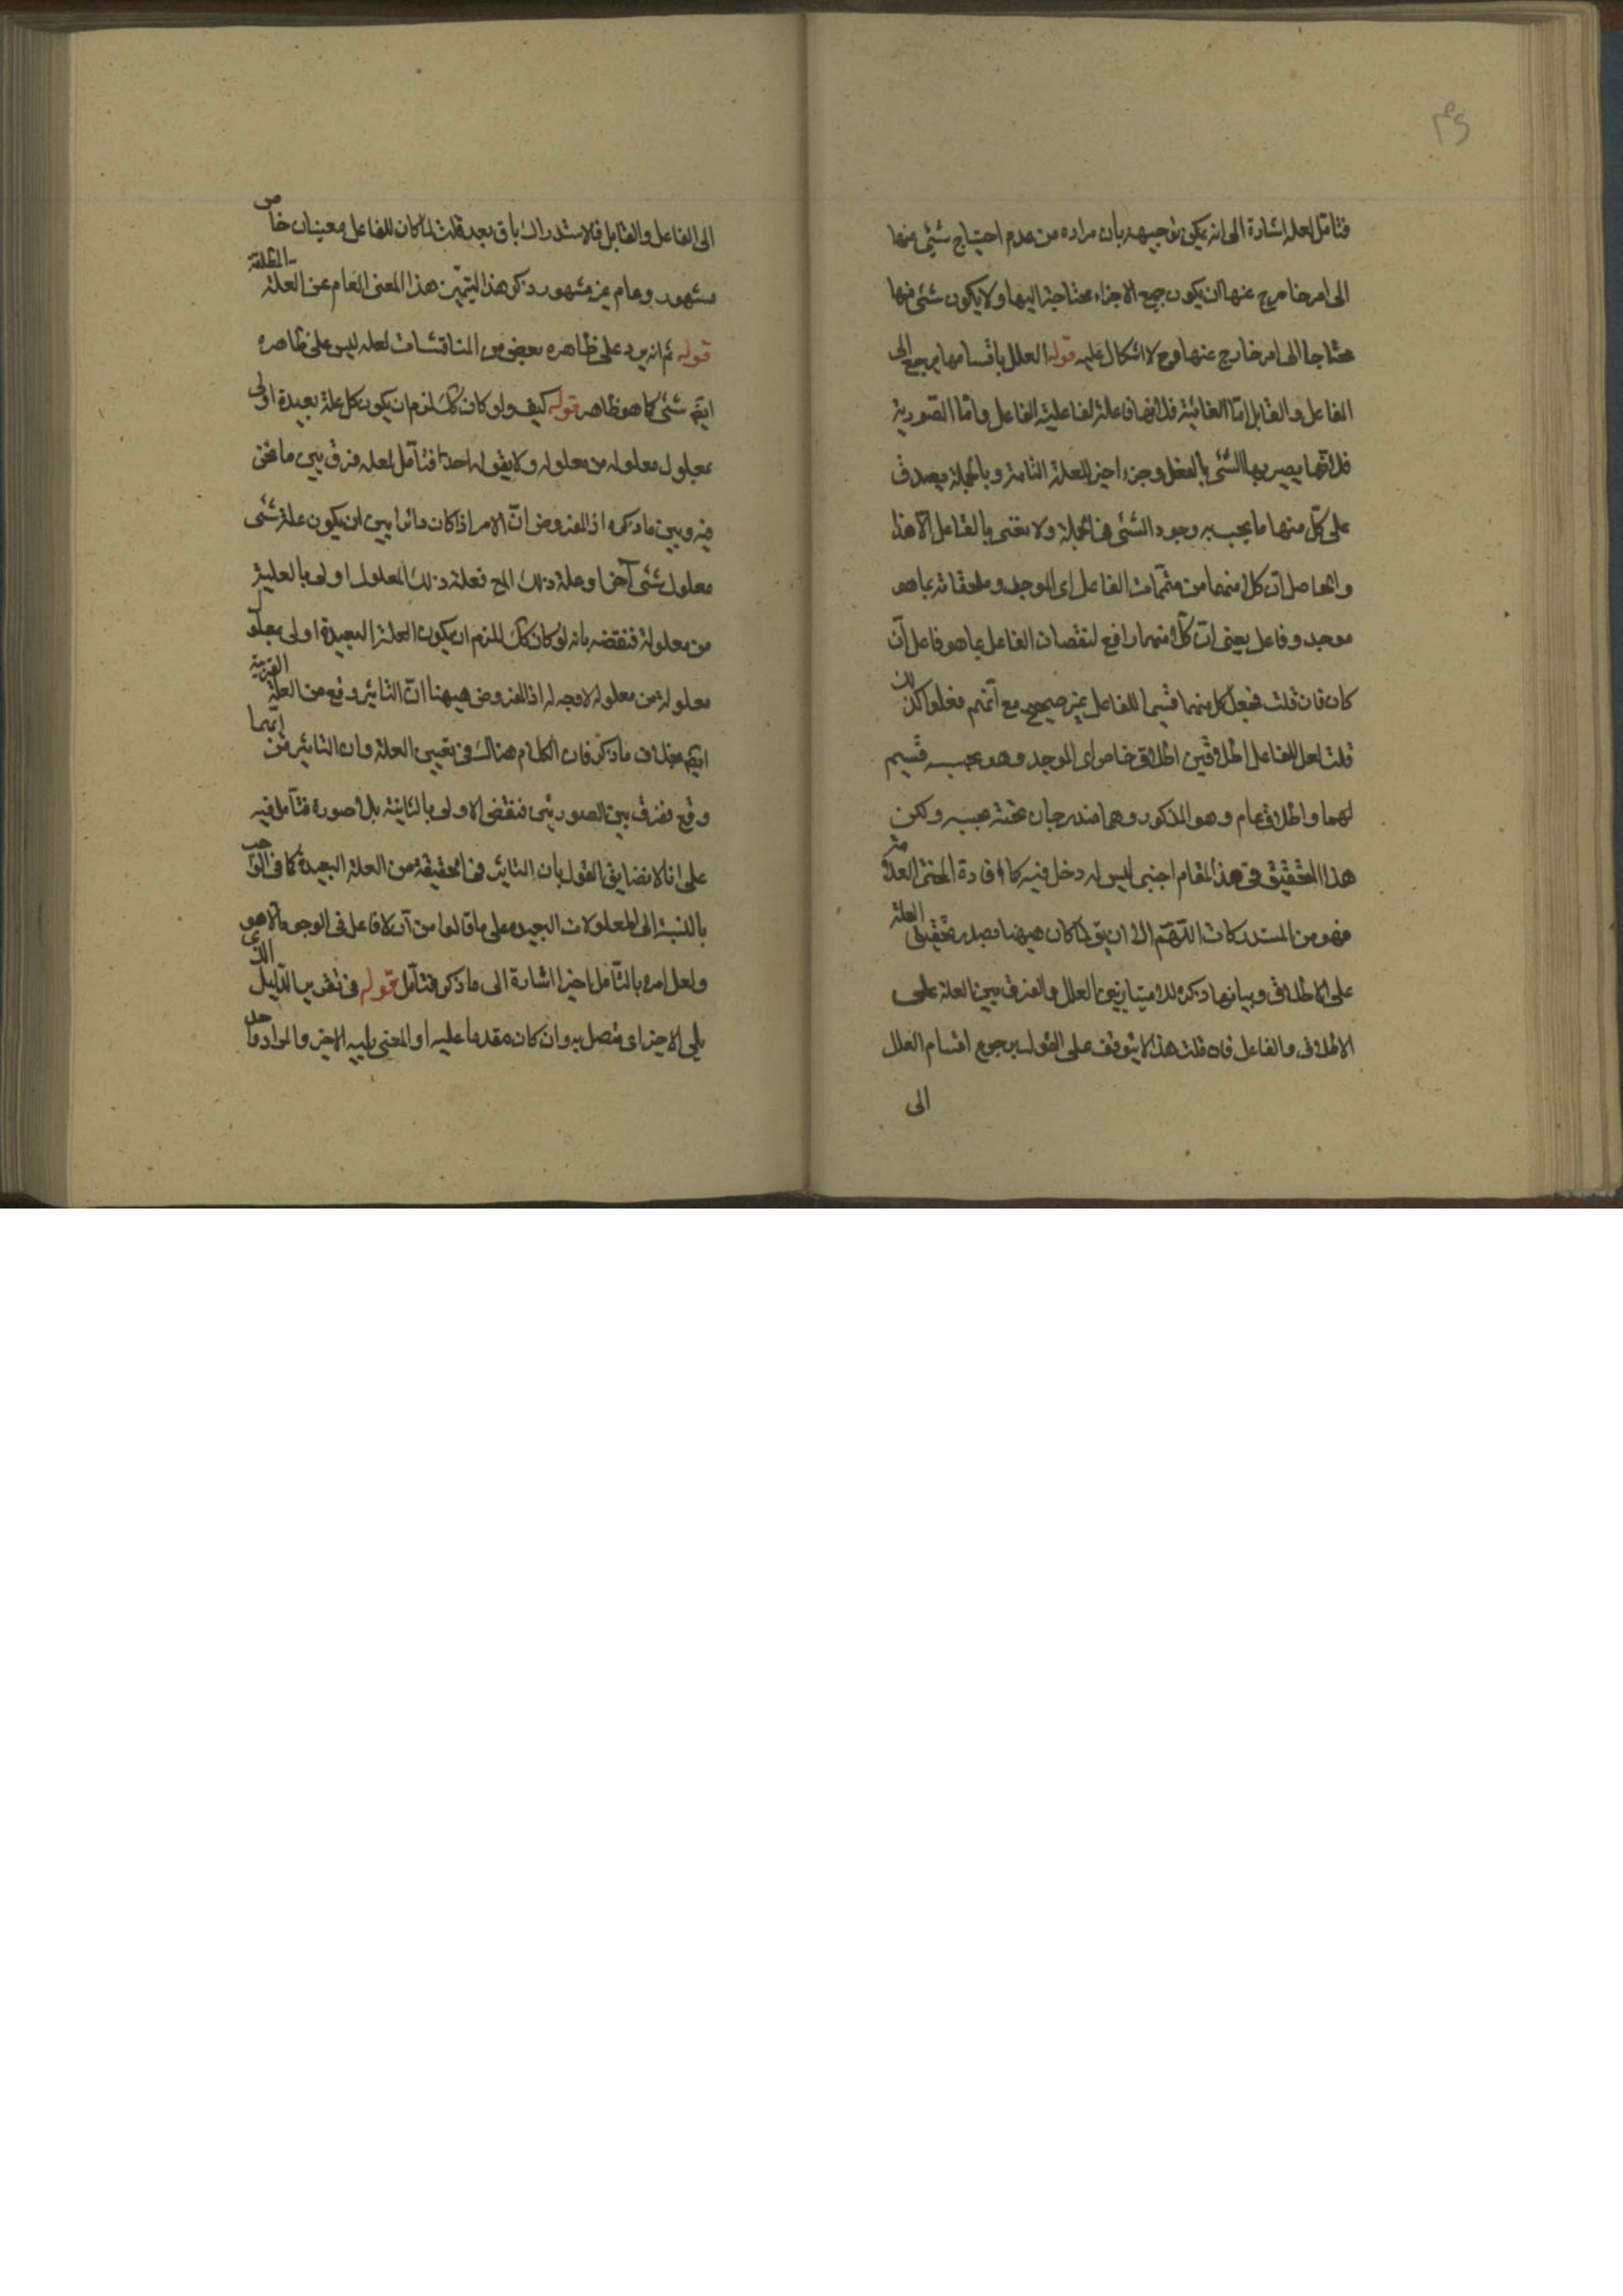 فتامل لعله اشارة الى انه يمكن توجيهه بان مراده من عدم احتياج شيئ منها
الى امر خارج عنها ان يكون جميع الاجزاء محتاجة اليها ولا يكون شئ منها
محتاجا الى امر خارج عنها وح لا اشكال عليه قوله العلل باقسامها يرجع الى
الفاعل والقابل امّا الغائية فلانها علة لفاعلية الفاعل وامّا الصورية
فلانّها يصير بها الشئ بالفعل وجزء اخير للعلة التامة وبالجملة يصدق
على كلّ منها ما يجب به وجود الشئ فى الجملة ولا نعنى بالفاعل الّا هذا
والحاصل انّ كلا منهما من متمّمات الفاعل اى الموجد وملحقاته بما هو
موجد وفاعل يعنى انّ كلّا منهما رافع لنقصان الفاعل بما هو فاعل ان
كان فان قلت فجعل كل منهما قسيما للفاعل غير صحيح مع انّهم فعلوا كذلك
قلت لعل للفاعل اطلاقين اطلاق خاص اى الموجد وهو بحسبه قسيم
لهما واطلاق عام وهو المذكور وهما مندرجان تحته بحسبه ولكن
هذا التحقيق فى هذا المقام اجنبى ليس له دخل فيه كافادة المحشى العلامة
فهو من المستدركات اللّهمّ الا ان يق لما كان ههنا بصدد تحقيق العلة
على الاطلاق وبيانها ذكره للامتياز بين العلل والفرق بين العلة على
الاطلاق والفاعل فان قلت هذا لا يتوقف على القول برجوع اقسام العلل
الى
الى الفاعل والقابل فالاستدراك باق بعد قلت لما كان للفاعل معنيان خاص
مشهور وعام غير مشهور ذكر هذا ليتميّز هذا المعنى العام عن العلة المطلقة
قوله ثم انه يرد على ظاهره بعض من المناقشات لعله ليس على ظاهره
ايضا شئ كما هو ظاهر قوله كيف ولو كان كك لزم ان يكون كل علة بعيدة اولى
بمعلول معلوله من معلوله ولا يقوله احد فتأمل لعله فرق بين ما نحن
فيه وبين ما ذكره اذ المفروض انّ الامر اذا كان دائرا بين ان يكون علة شئ
معلول شئ آخر او علة ذلك الخ فعلة ذلك المعلول اولى بالعلية
من معلوله فنقضه بانه لو كان كك للزم ان يكون العلة البعيدة اولى بمعلول
معلوله من معلوله لا وجه له اذ المفروض ههنا انّ التاثير وقع من العلة القريبة
ايضا بخلاف ما ذكر فان الكلام هناك فى تعيين العلة وان التاثير من ايّهما
وقع ففرق بين الصورتين فنقض الاولى بالثانية بلا صورة فتأمل فيه
على انا لا نضايق القول بان التاثير فى الحقيقة من العلة البعيدة كما فى الواجب
بالنسبة الى المعلولات البعيدة على ما قالوا من ان لا فاعل فى الوجود الا هو
ولعل امره بالتأمل اخيرا اشارة الى ما ذكر فتأمل قوله فى تقرير الدّليل الذى
يلى الاخير اى متصل به وان كان مقدما عليه او المعنى يليه الاخير والمراد واحد